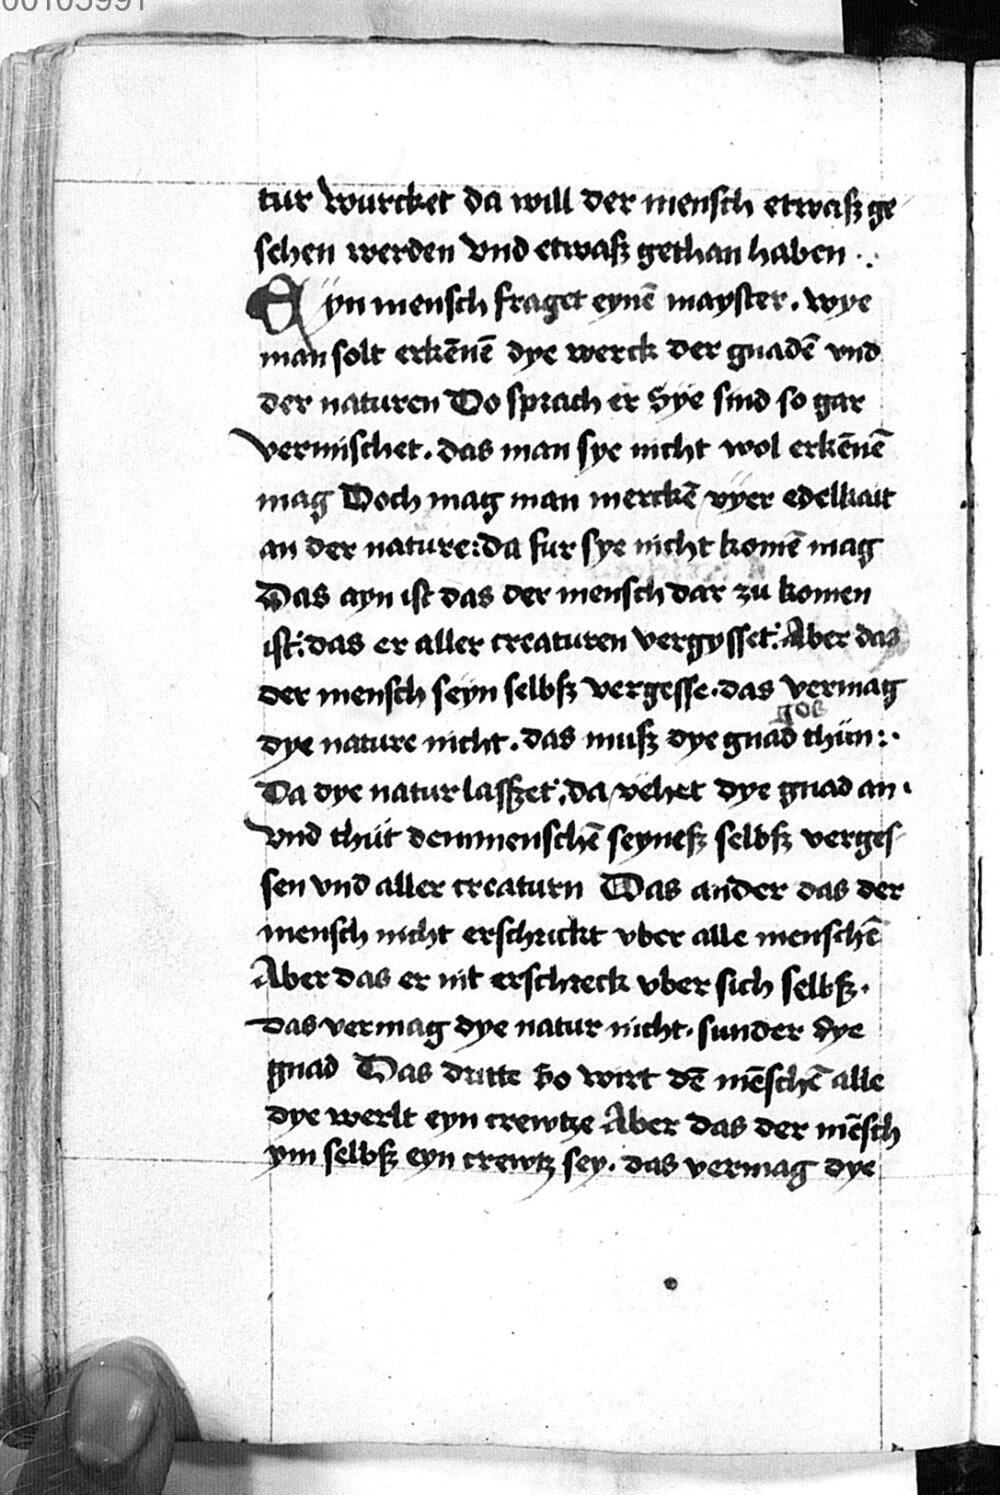 00103991
tur wurcket da will der mensch etwaß ge
schen werden vnd etwaß gethan haben ·.
Eÿn mensch fraget eynē mayster. wye
man solt erkēnē dye werck der gnadē vnd
der naturen Do sprach er Sÿe sind so gar
vermischet. das man sye nicht wol erkēnē
mag Doch mag man merckē vÿer edelkait
an der nature: da fur sye nicht komē mag
Das ayn ist das der mensch dar zu komen
ist: das er aller creaturen vergysset: Aber das
der mensch seÿn selbß vergesse. das vermag
dye nature nicht. das muß dye gnad thün:·
Da dye natur lasßet, da vëhet dye gnad an.
vnd thüt dem menschē seyneß selbß verges
sen vnd aller creaturn Das ander das der
mensch nicht erschrickt vber alle menschē
Aber das er nit erschreck vber sich selbß.
das vermag dye natur nicht. sunder dye
gnad Das dritte so wirt dē mēschē alle
dye werlt eyn crewtze Aber das der mēsch
ym selbß eyn crewtz sey. das vermag dye